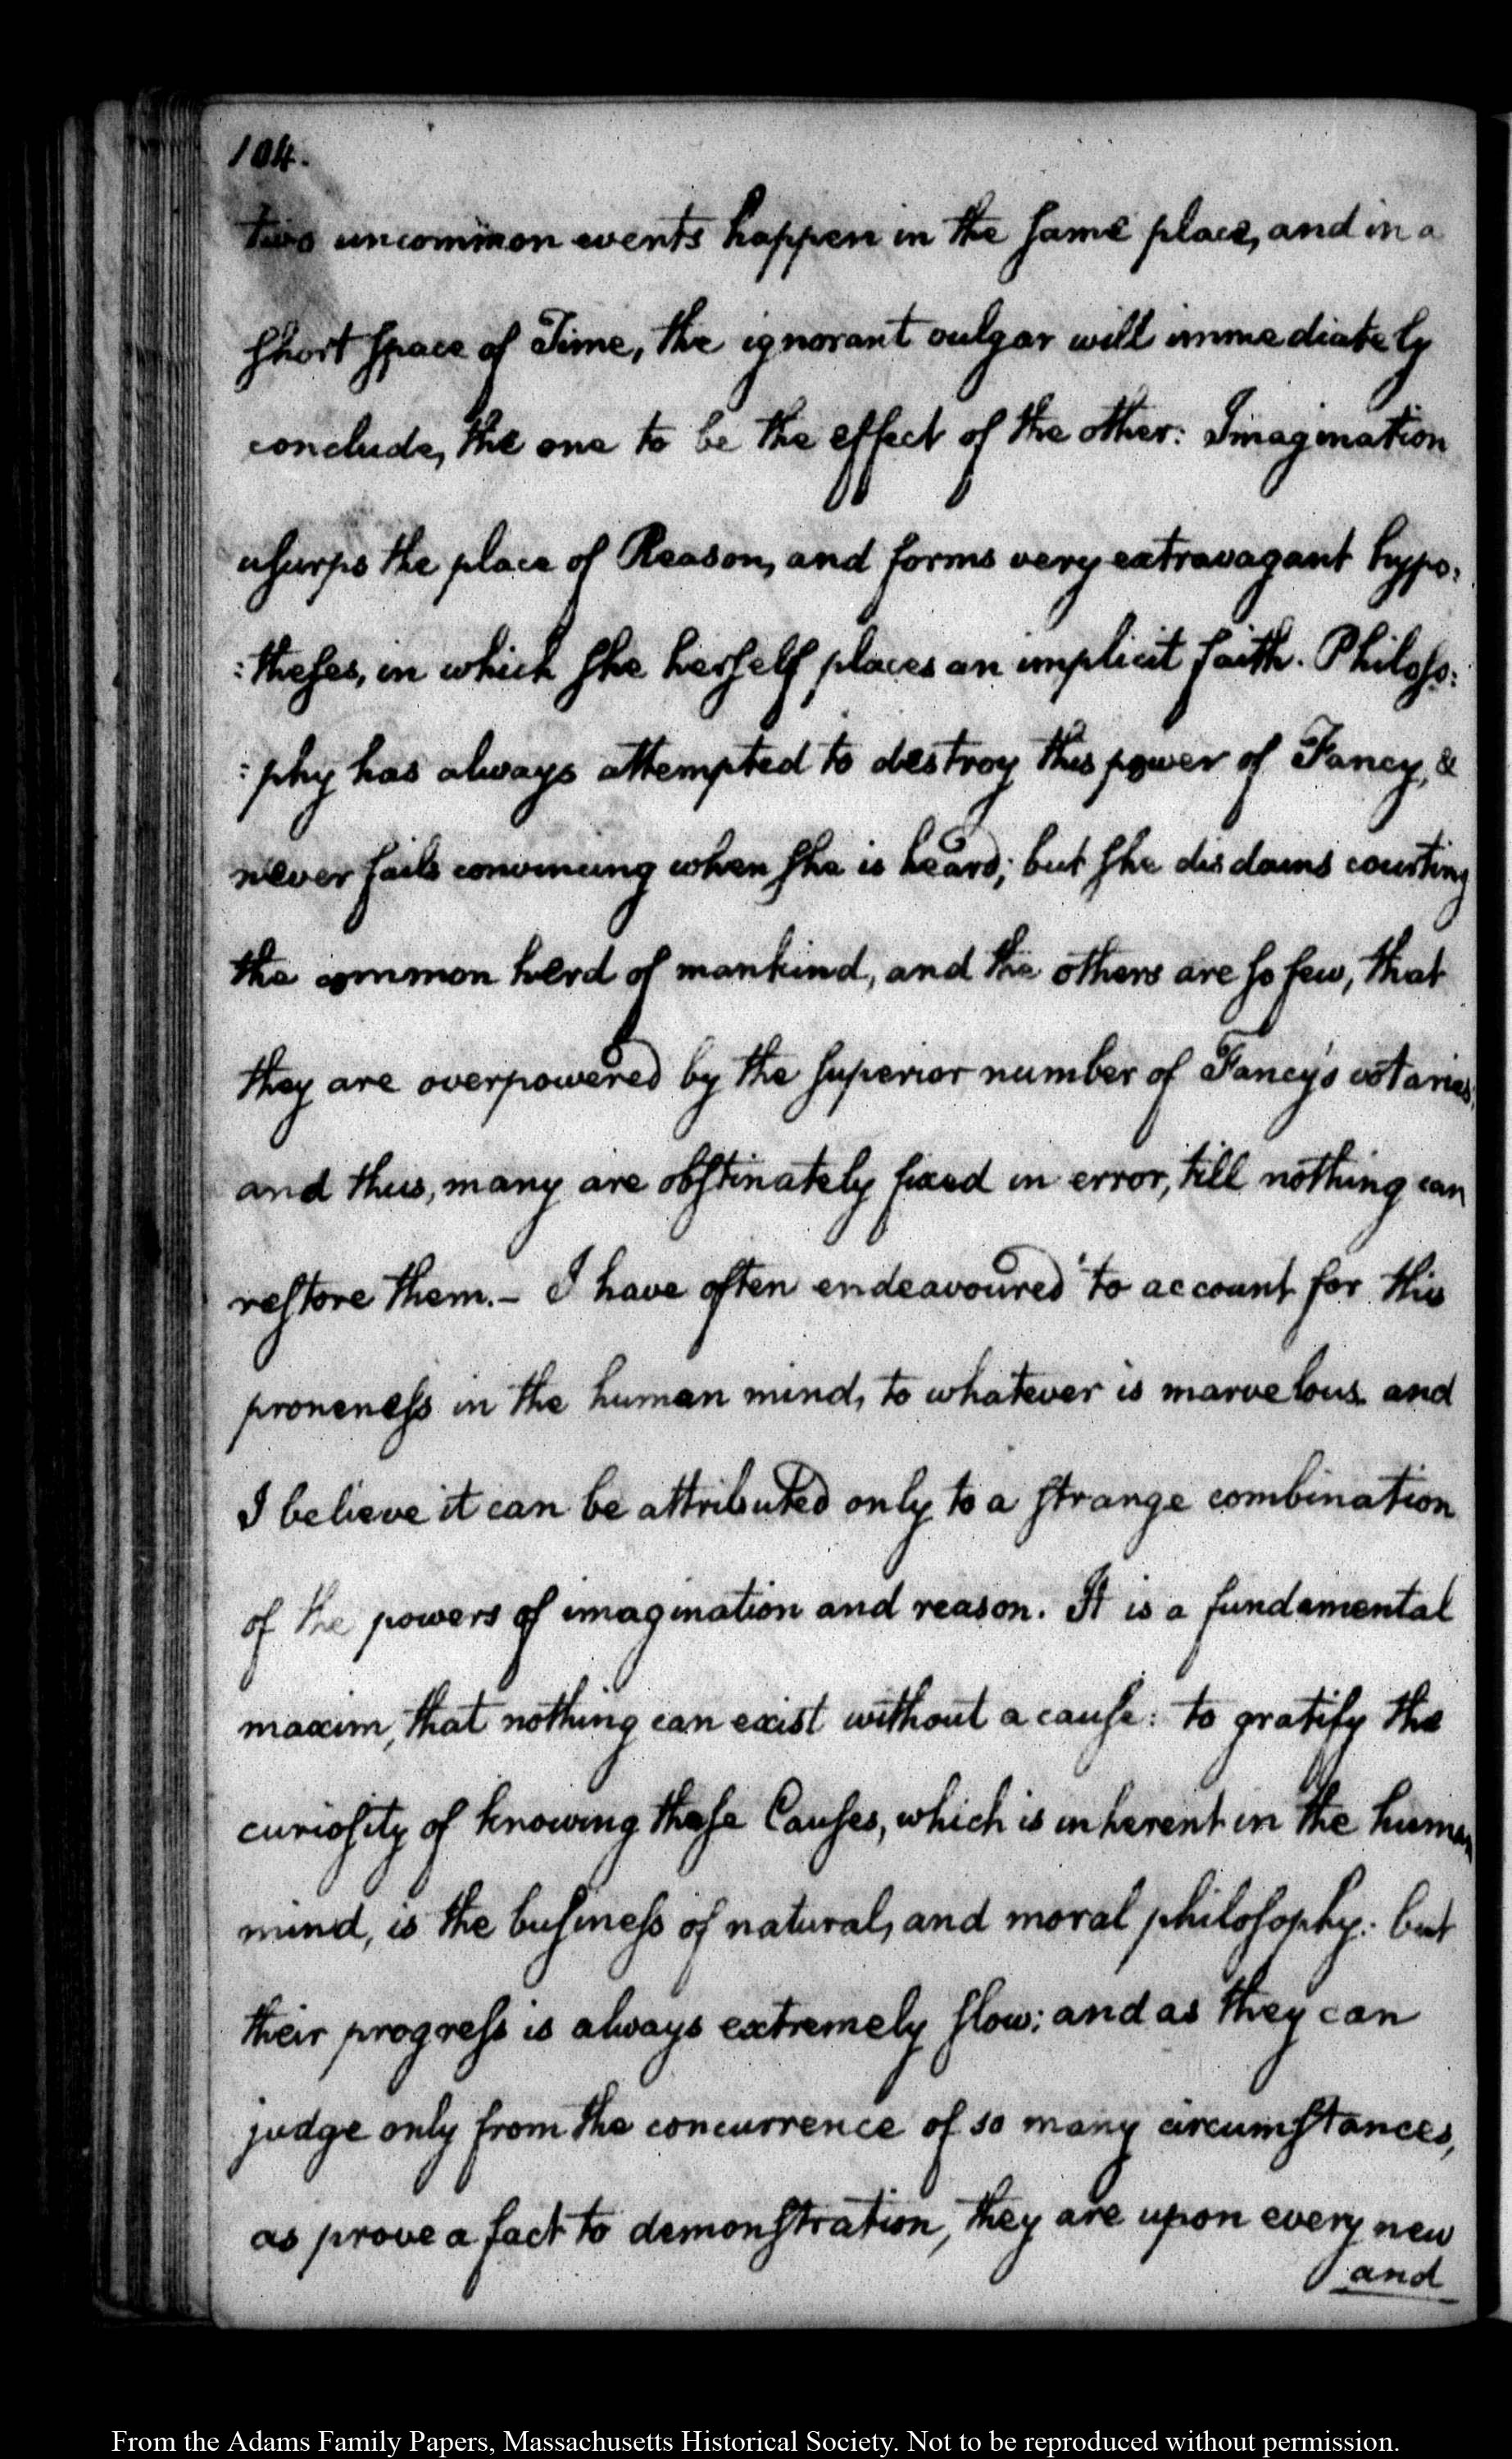 104.
two uncommon events happen in the same place, and in a
short space of Time, the ignorant vulgar will immediately
conclude, the one to be the effect of the other: Imagination
usurps the place of Reason, and forms very extravagant hypo:
:theses, in which she herself places an implicit faith. Philoso:
:phy has always attempted to destroy this power of Fancy, &
never fails convincing when she is heard; but she disdains courting
the common herd of mankind, and the others are so few, that
they are overpowered by the superior number of Fancy's votaries,
and thus, many are obstinately fixed in error, till nothing can
restore them.- I have often endeavoured to account for this
proneness in the human mind, to whatever is marvelous. and
I believe it can be attributed only to a strange combination
of the powers of imagination and reason. It is a fundamental
maxim, that nothing can exist without a cause: to gratify the
curiosity of knowing these Causes, which is inherent in the human
mind, is the business of natural, and moral philosophy: but
their progress is always extremely slow; and as they can
judge only from the concurrence of so many circumstances,
as prove a fact to demonstration, they are upon every new
and
From the Adams Family Papers, Massachusetts Historical Society. Not to be reproduced without permission.